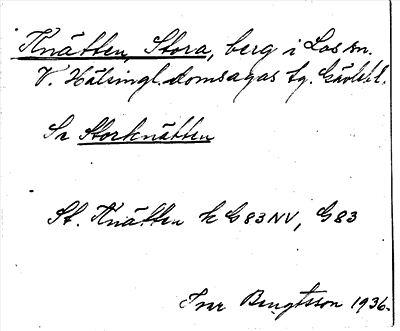 Knätten, Stora, berg i Los sn.
V. Hälsingl. domsagas tg. Gävleb. l.
Se Storknätten
St. Knätten k G83NV, G83
Ivar Bengtsson 1936.